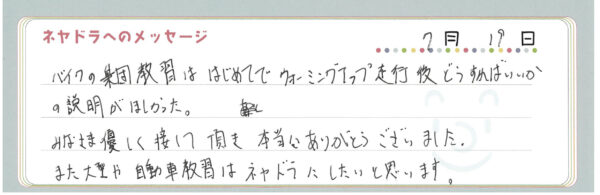 ネヤドラへのメッセージ
7月 19日
バイクの集団教習ははじめてでウォーミングアップ走行後どうすればいいか
の説明がほしかった。
みなさま優しく接して頂き本当にありがとうございました.
また大型や自動車教習はネヤドラにしたいと思います。